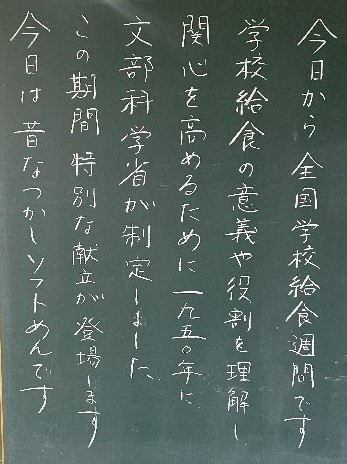 今日から全国学校給食週間です
学校給食の意義や役割を理解し
関心を高めるために一九五〇年に
文部科学省が制定しました
この期間特別な献立が登場します
今日は昔なつかしソフトめんです